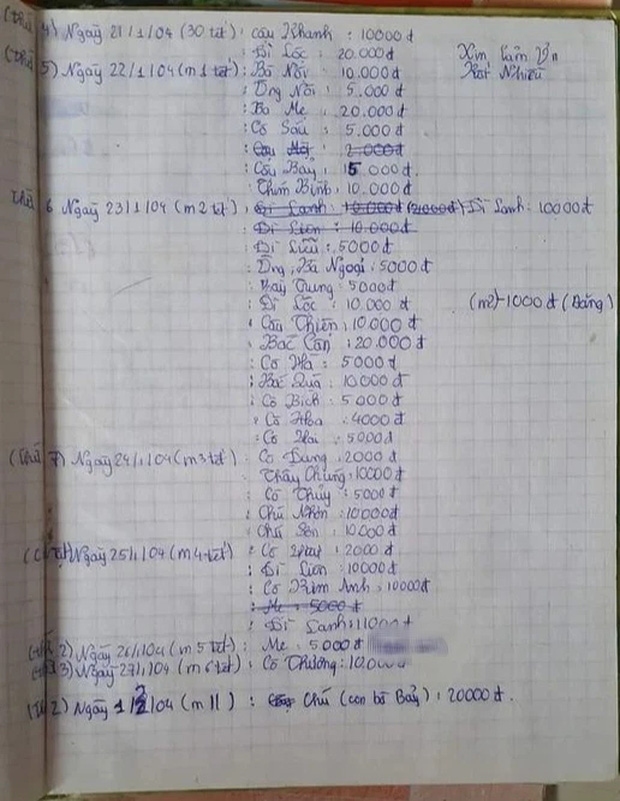 (thứ 4) Ngày 21/1/04 (30 tết) : cậu Khanh : 10000đ
: Dì Lộc : 20.000đ
Xin cảm ơn
(thứ 5) Ngày 22/1/04 (m1 tết) : Bà Nội : 10.000đ
Rất Nhiều
: Ông Nội : 5.000đ
: Ba Mẹ : 20.000đ
: Cô Sáu : 5.000đ
: Cậu Một : 2.000đ
: Cậu Bảy : 15.000đ.
: Thím Bình : 10.000đ
Thứ 6 Ngày 23/1/04 (m2 tết) : Dì Lanh : 10.000đ (21000đ) Dì Lanh : 10000đ
: Dì Lien : 10.000đ
: Dì Liễu : 5000đ
: Ông, Bà Ngoại : 5000đ
: Bảy Trung : 5000đ
: Dì Lộc : 10.000đ
(m2) - 1000đ (Đáng)
: Cậu Thiên : 10.000đ
: Bác Cần : 20.000đ
: Cô Hà : 5000đ
: Bác Quả : 10000đ
: Cô Bích : 5000đ
: Cô Hoa : 4000đ
: Cô Hai : 5000đ
(thứ 7) Ngày 24/1/04 (m3 tết) : Cô Dung : 2000đ
Thầy Chung : 10000đ
: Cô Thủy : 5000đ
: Chú Nhơn : 10000đ
: Chú Sơn : 10000đ
Ngày 25/1/04 (m4 tết) : Cô : 2000đ
: Dì Lien : 10000đ
: Cô Kim Anh : 10000đ
: Mẹ : 5000đ
: Dì Lanh : 11000đ
(thứ 2) Ngày 26/1/04 (m5 tết) : Mẹ : 5000đ
(thứ 3) Ngày 27/1/04 (m6 tết) : Cô Thương : 10.000đ
(Thứ 2) Ngày 1/2/04 (m11) : Chú (con bà Bảy) : 20000đ.